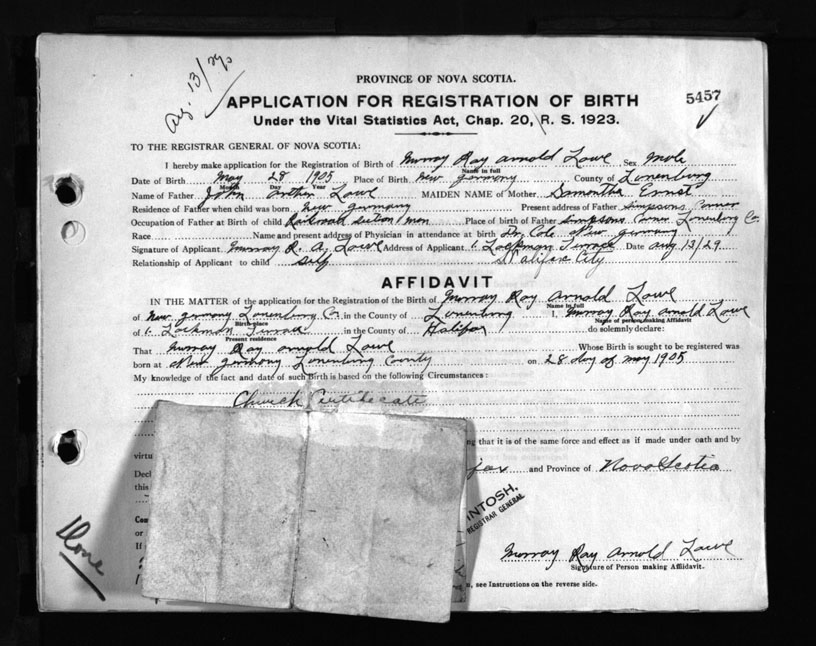 Aug. 13/29
PROVINCE OF NOVA SCOTIA.
APPLICATION FOR REGISTRATION OF BIRTH
5457
Under the Vital Statistics Act, Chap. 20, R. S. 1923.
TO THE REGISTRAR GENERAL OF NOVA SCOTIA:
I hereby make application for the Registration of Birth of Murray Ray Arnold Lowe Sex Male
Name in full
Date of Birth May 28 1905 Place of Birth New Germany County of Lunenburg
Month Day Year
Name of Father John Arthur Lowe MAIDEN NAME of Mother Samantha Ernst
Residence of Father when child was born New Germany Present address of Father Simpsons Corner
Occupation of Father at Birth of child Railroad section man Place of birth of Father Simpsons Corner Lunenburg Co.
Race Name and present address of Physician in attendance at birth Dr. Cole New Germany
Signature of Applicant Murray R. A. Lowe Address of Applicant 1 Lockman Terrace Date Aug 13/29
Relationship of Applicant to child Self Halifax City
AFFIDAVIT
IN THE MATTER of the application for the Registration of the Birth of Murray Ray Arnold Lowe
Name in full
of New Germany Lunenburg Co. in the County of Lunenburg I, Murray Ray Arnold Lowe
Birth-place Name of person making Affidavit
of 1 Lockman Terrace in the County of Halifax do solemnly declare:
Present residence
That Murray Ray Arnold Lowe Whose Birth is sought to be registered was
born at New Germany Lunenburg County on 28 day of May 1905
My knowledge of the fact and date of such Birth is based on the following Circumstances:
Church Certificate
ng that it is of the same force and effect as if made under oath and by
virtu
Decl fax and Province of Nova Scotia
this
INTOSH.
REGISTRAR GENERAL
Con
or
If
Done
Murray Ray Arnold Lowe
Signature of Person making Affidavit.
n, see Instructions on the reverse side.